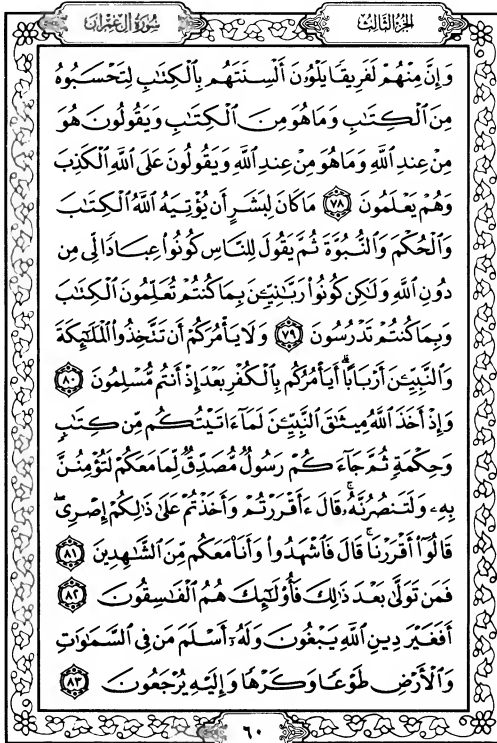 سُورَةُ آلِ عِمْرَانَ
الجُزْءُ الثَّالِثُ
وَإِنَّ مِنْهُمْ لَفَرِيقًا يَلْوُۥنَ أَلْسِنَتَهُم بِالْكِتَٰبِ لِتَحْسَبُوهُ
مِنَ ٱلْكِتَٰبِ وَمَا هُوَ مِنَ ٱلْكِتَٰبِ وَيَقُولُونَ هُوَ
مِنْ عِندِ ٱللَّهِ وَمَا هُوَ مِنْ عِندِ ٱللَّهِ وَيَقُولُونَ عَلَى ٱللَّهِ ٱلْكَذِبَ
وَهُمْ يَعْلَمُونَ ٧٨ مَا كَانَ لِبَشَرٍ أَن يُؤْتِيَهُ ٱللَّهُ ٱلْكِتَٰبَ
وَٱلْحُكْمَ وَٱلنُّبُوَّةَ ثُمَّ يَقُولَ لِلنَّاسِ كُونُوا۟ عِبَادًا لِّى مِن
دُونِ ٱللَّهِ وَلَٰكِن كُونُوا۟ رَبَّٰنِيِّۦنَ بِمَا كُنتُمْ تُعَلِّمُونَ ٱلْكِتَٰبَ
وَبِمَا كُنتُمْ تَدْرُسُونَ ٧٩ وَلَا يَأْمُرَكُمْ أَن تَتَّخِذُوا۟ ٱلْمَلَٰٓئِكَةَ
وَٱلنَّبِيِّۦنَ أَرْبَابًا ۗ أَيَأْمُرُكُم بِٱلْكُفْرِ بَعْدَ إِذْ أَنتُم مُّسْلِمُونَ ٨٠
وَإِذْ أَخَذَ ٱللَّهُ مِيثَٰقَ ٱلنَّبِيِّۦنَ لَمَآ ءَاتَيْتُكُم مِّن كِتَٰبٍ
وَحِكْمَةٍ ثُمَّ جَآءَكُمْ رَسُولٌ مُّصَدِّقٌ لِّمَا مَعَكُمْ لَتُؤْمِنُنَّ
بِهِۦ وَلَتَنصُرُنَّهُۥ ۚ قَالَ ءَأَقْرَرْتُمْ وَأَخَذْتُمْ عَلَىٰ ذَٰلِكُمْ إِصْرِى ۖ
قَالُوٓا۟ أَقْرَرْنَا ۚ قَالَ فَٱشْهَدُوا۟ وَأَنَا۠ مَعَكُم مِّنَ ٱلشَّٰهِدِينَ ٨١
فَمَن تَوَلَّىٰ بَعْدَ ذَٰلِكَ فَأُو۟لَٰٓئِكَ هُمُ ٱلْفَٰسِقُونَ ٨٢
أَفَغَيْرَ دِينِ ٱللَّهِ يَبْغُونَ وَلَهُۥٓ أَسْلَمَ مَن فِى ٱلسَّمَٰوَٰتِ
وَٱلْأَرْضِ طَوْعًا وَكَرْهًا وَإِلَيْهِ يُرْجَعُونَ ٨٣
٦٠